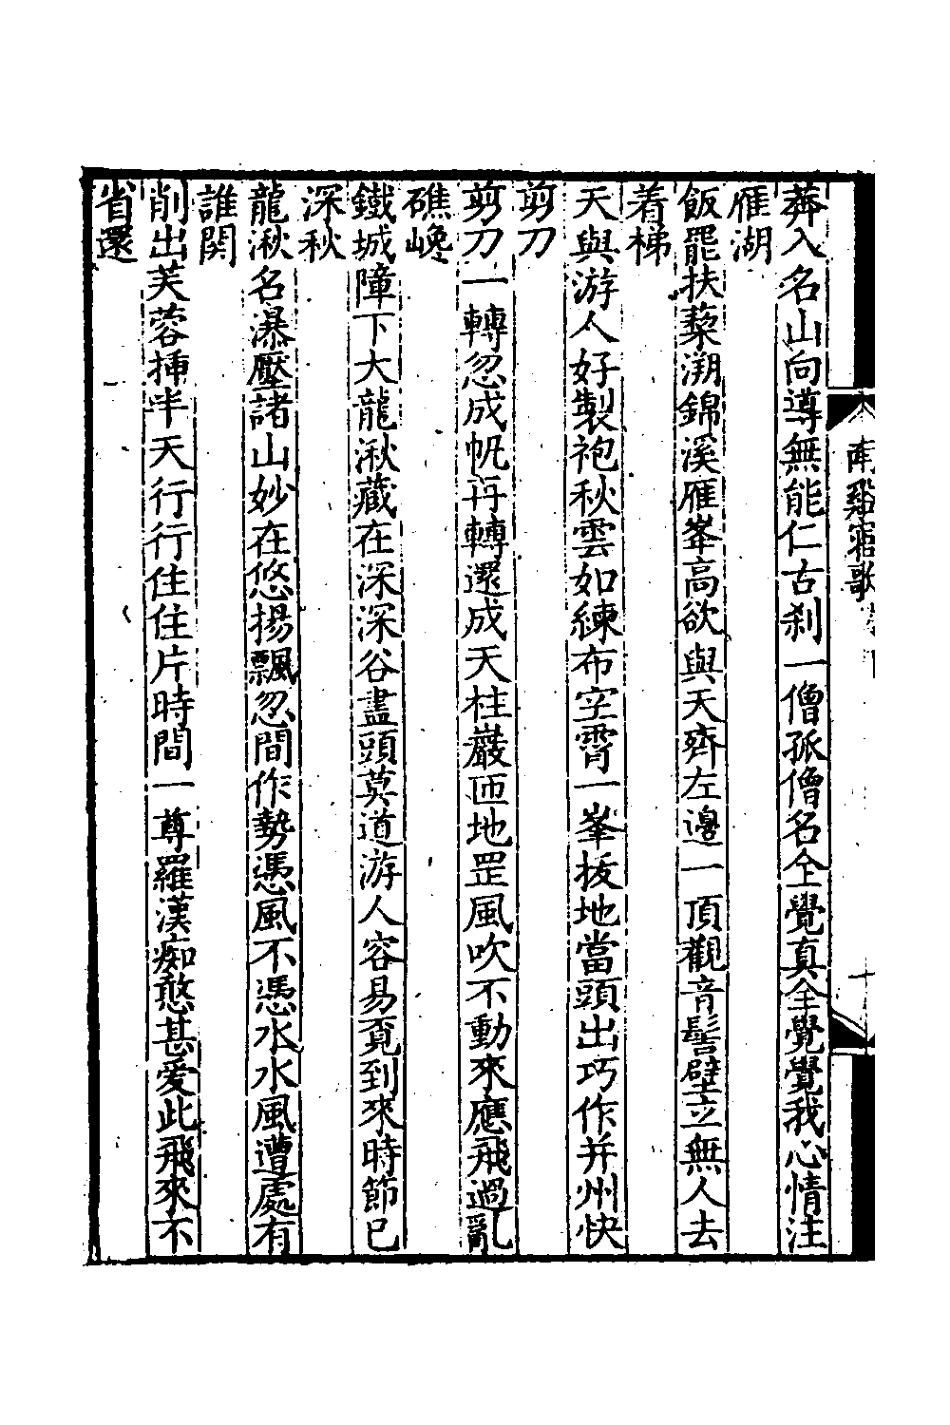 莽入名山向導無能仁古刹一僧孤僧名仝覺真仝覺覺我心情注
雁湖
飯罷扶藜溯錦溪雁峯高欲與天齊左邊一頂觀音髻壁立無人去
着梯
天與游人好製袍秋雲如練布空霄一峯拔地當頭出巧作并州快
剪刀
剪刀一轉忽成帆再轉還成天柱巖匝地罡風吹不動來應飛過亂
礁巉
鐵城障下大龍湫藏在深深谷盡頭莫道游人容易覓到來時節已
深秋
龍湫名瀑壓諸山妙在悠揚飄忽間作勢憑風不憑水水風遭處有
誰関
削出芙蓉插半天行行住住片時間一尊羅漢痴憨甚愛此飛來不
省還
南谿寤歌
十